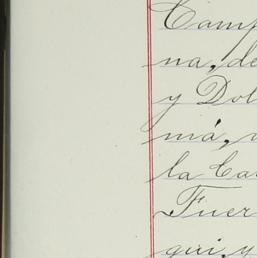 Camp
na, de
y Dol
má, 
la Ca
Fuer
qui, y